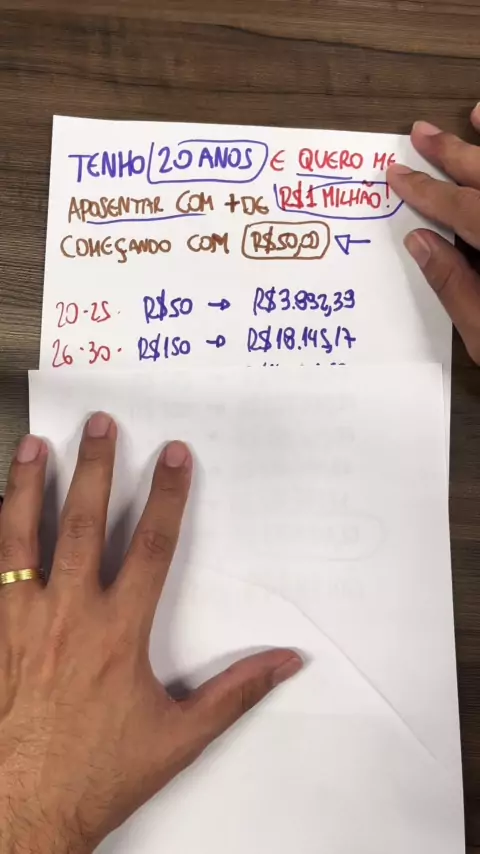 TENHO 20 ANOS E QUERO ME
APOSENTAR COM + DE R$1 MILHÃO!
COMEÇANDO COM R$50,00
20-25. R$50 → R$3.892,39
26-30. R$150 → R$18.145,17